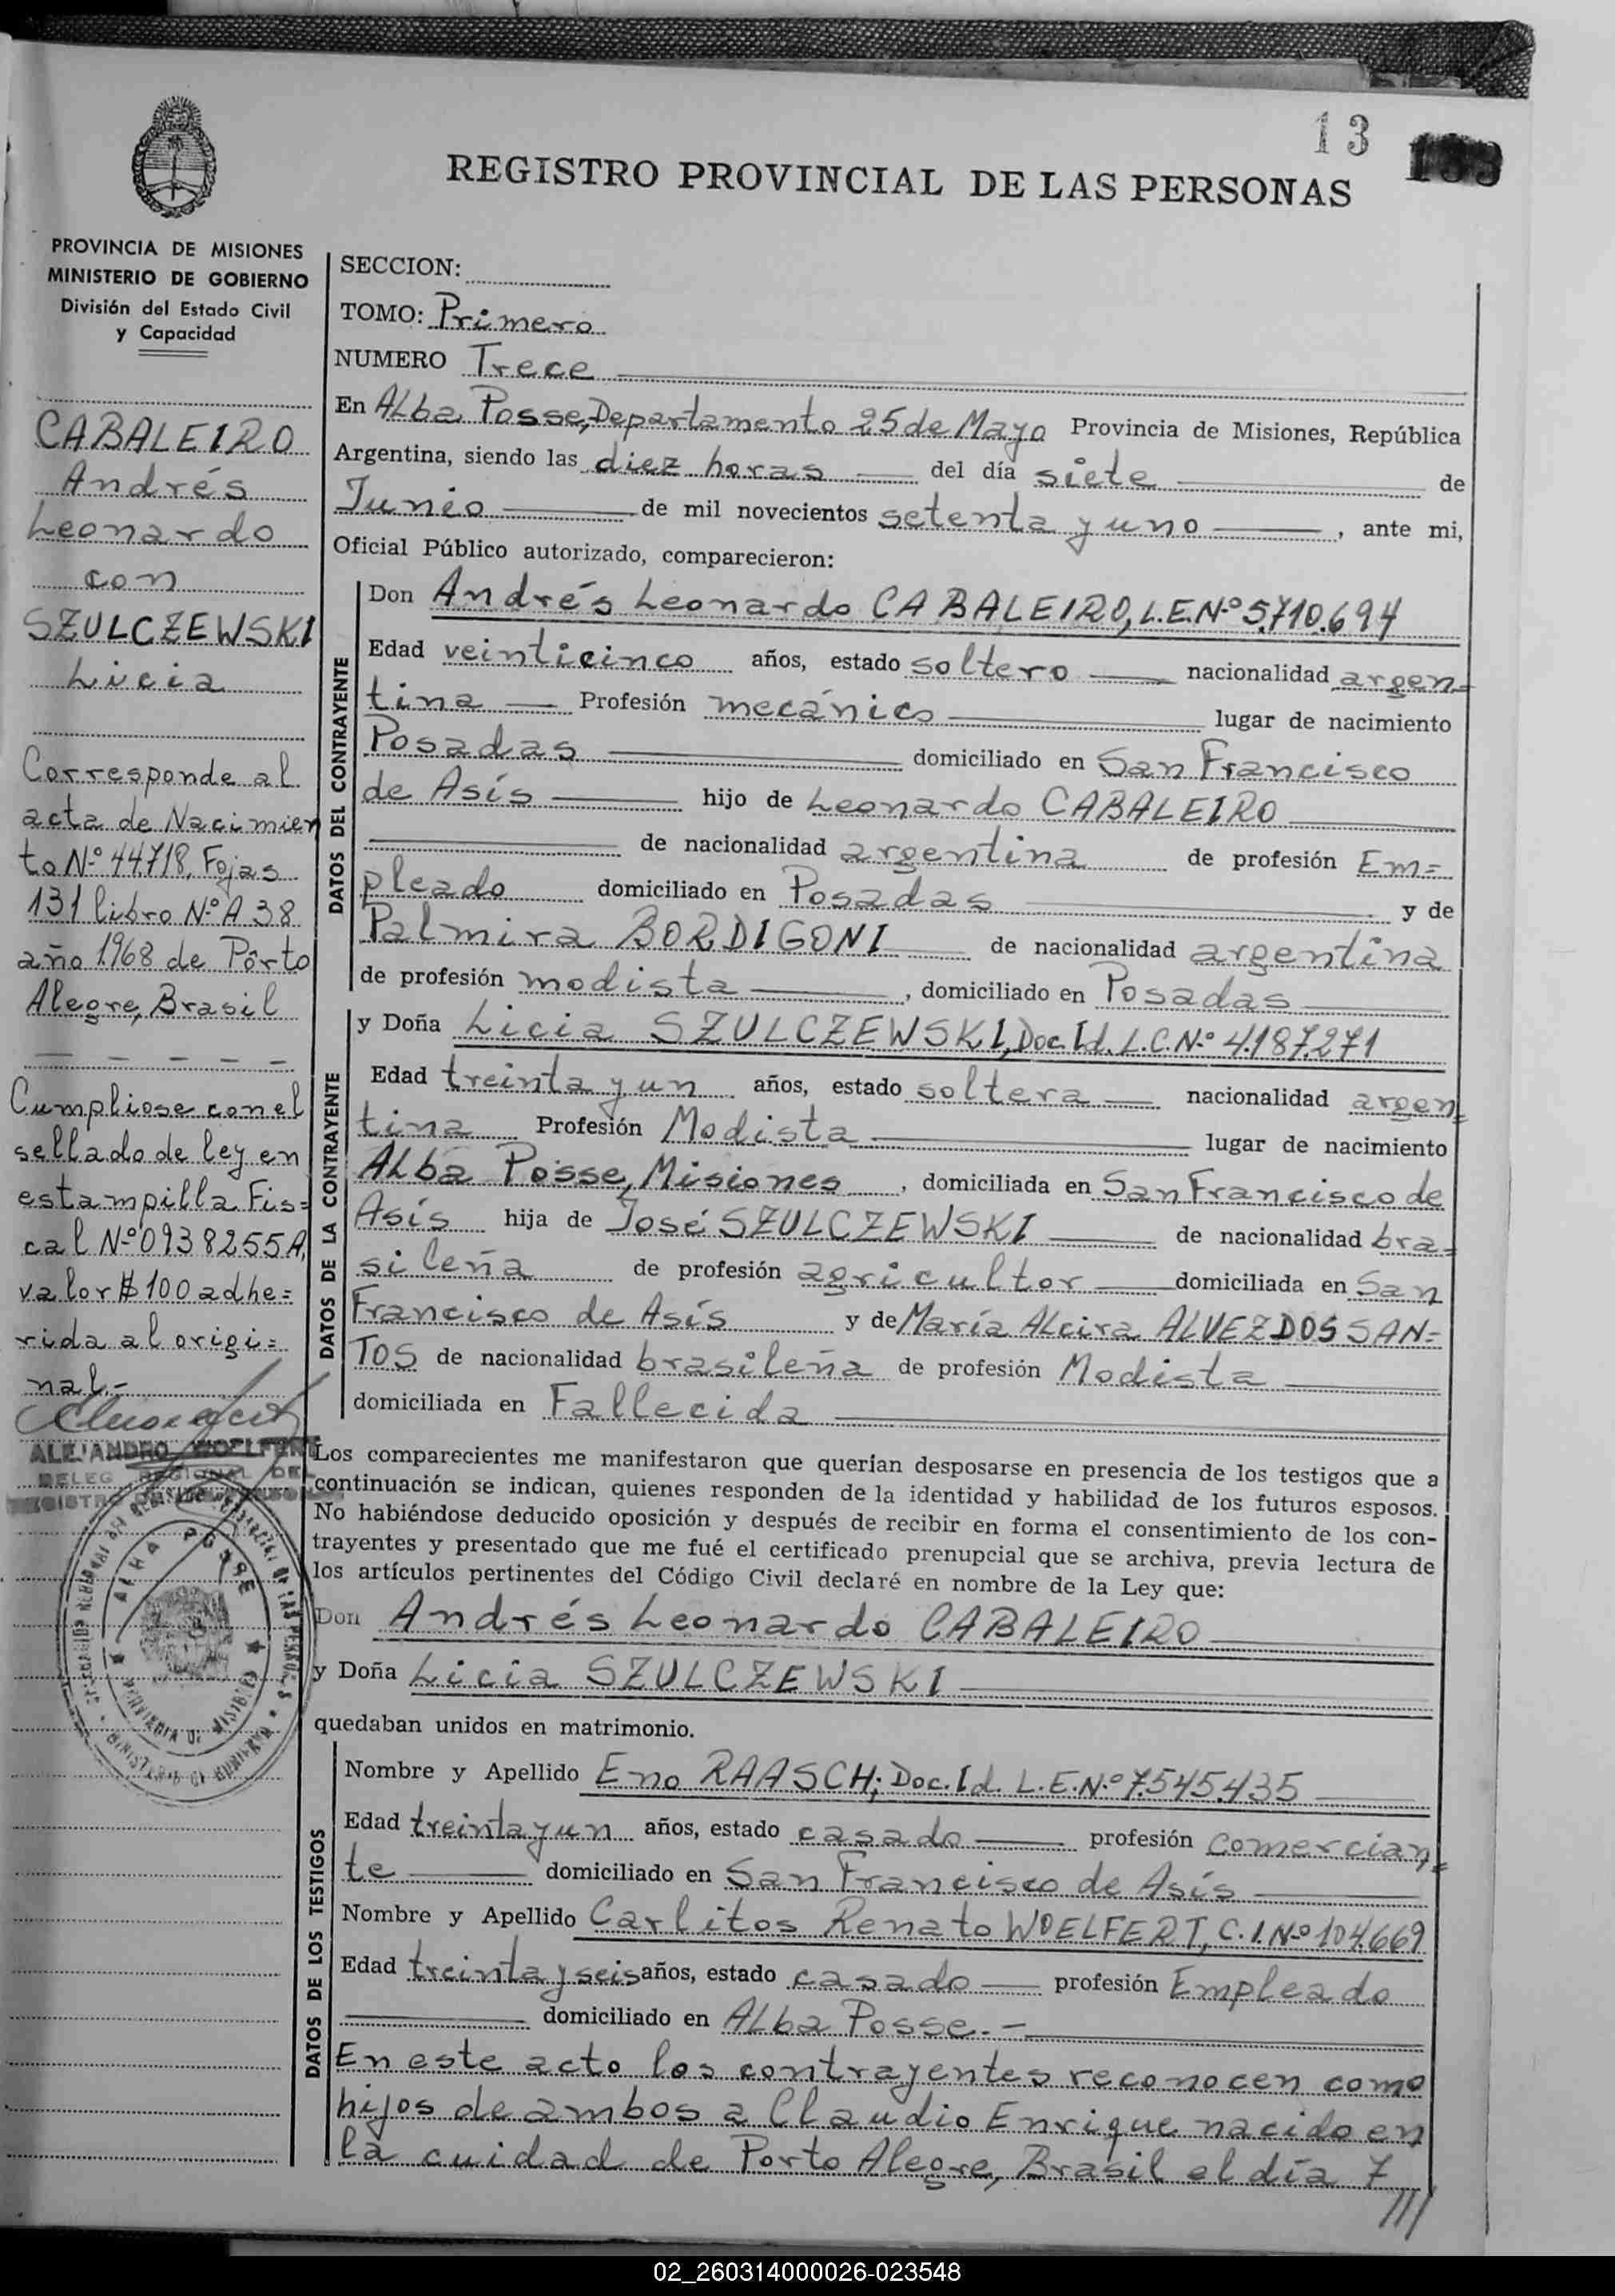 13
133
REGISTRO PROVINCIAL DE LAS PERSONAS
PROVINCIA DE MISIONES
MINISTERIO DE GOBIERNO
División del Estado Civil
y Capacidad
CABALEIRO
Andrés
Leonardo
con
SZULCZEWSKI
Licia
Corresponde al
acta de Nacimien
to Nº 44.718, Fojas
131 libro Nº A 38
año 1.968 de Pôrto
Alegre, Brasil
Cumpliose con el
sellado de ley en
estampilla Fis=
cal Nº 0938255A,
valor $ 100 adhe=
rida al origi=
nal.-
ALEJANDRO WOELFERT
DELEG. REGIONAL DEL
REGISTRO
ALBA POSSE
PROVINCIA DE MISIONES
MINISTERIO DE GOBIERNO
SECCION:
TOMO: Primero
NUMERO Trece
En Alba Posse, Departamento 25 de Mayo Provincia de Misiones, República
Argentina, siendo las diez horas del día siete de
Junio de mil novecientos setenta y uno, ante mi,
Oficial Público autorizado, comparecieron:
DATOS DEL CONTRAYENTE
Don Andrés Leonardo CABALEIRO, L.E.Nº 5.710.694
Edad veinticinco años, estado soltero nacionalidad argen=
tina Profesión mecánico lugar de nacimiento
Posadas domiciliado en San Francisco
de Asís hijo de Leonardo CABALEIRO
de nacionalidad argentina de profesión Em=
pleado domiciliado en Posadas y de
Palmira BORDIGONI de nacionalidad argentina
de profesión modista, domiciliado en Posadas
DATOS DE LA CONTRAYENTE
y Doña Licia SZULCZEWSKI, Doc. Id. L.C.Nº 4.187.271
Edad treinta y un años, estado soltera nacionalidad argen=
tina Profesión Modista lugar de nacimiento
Alba Posse, Misiones, domiciliada en San Francisco de
Asís hija de José SZULCZEWSKI de nacionalidad bra=
sileña de profesión agricultor domiciliada en San
Francisco de Asís y de María Alcira ALVEZ DOS SAN=
TOS de nacionalidad brasileña de profesión Modista
domiciliada en Fallecida
Los comparecientes me manifestaron que querían desposarse en presencia de los testigos que a
continuación se indican, quienes responden de la identidad y habilidad de los futuros esposos.
No habiéndose deducido oposición y después de recibir en forma el consentimiento de los con-
trayentes y presentado que me fué el certificado prenupcial que se archiva, previa lectura de
los artículos pertinentes del Código Civil declaré en nombre de la Ley que:
Don Andrés Leonardo CABALEIRO
y Doña Licia SZULCZEWSKI
quedaban unidos en matrimonio.
DATOS DE LOS TESTIGOS
Nombre y Apellido Eno RAASCH; Doc. Id. L.E.Nº 7.545.435
Edad treinta y un años, estado casado profesión comercian=
te domiciliado en San Francisco de Asís
Nombre y Apellido Carlitos Renato WOELFERT, C.I.Nº 104.669
Edad treinta y seis años, estado casado profesión Empleado
domiciliado en Alba Posse.-
En este acto los contrayentes reconocen como
hijos de ambos a Claudio Enrique nacido en
la cuidad de Porto Alegre, Brasil el día 7
///
02_260314000026-023548